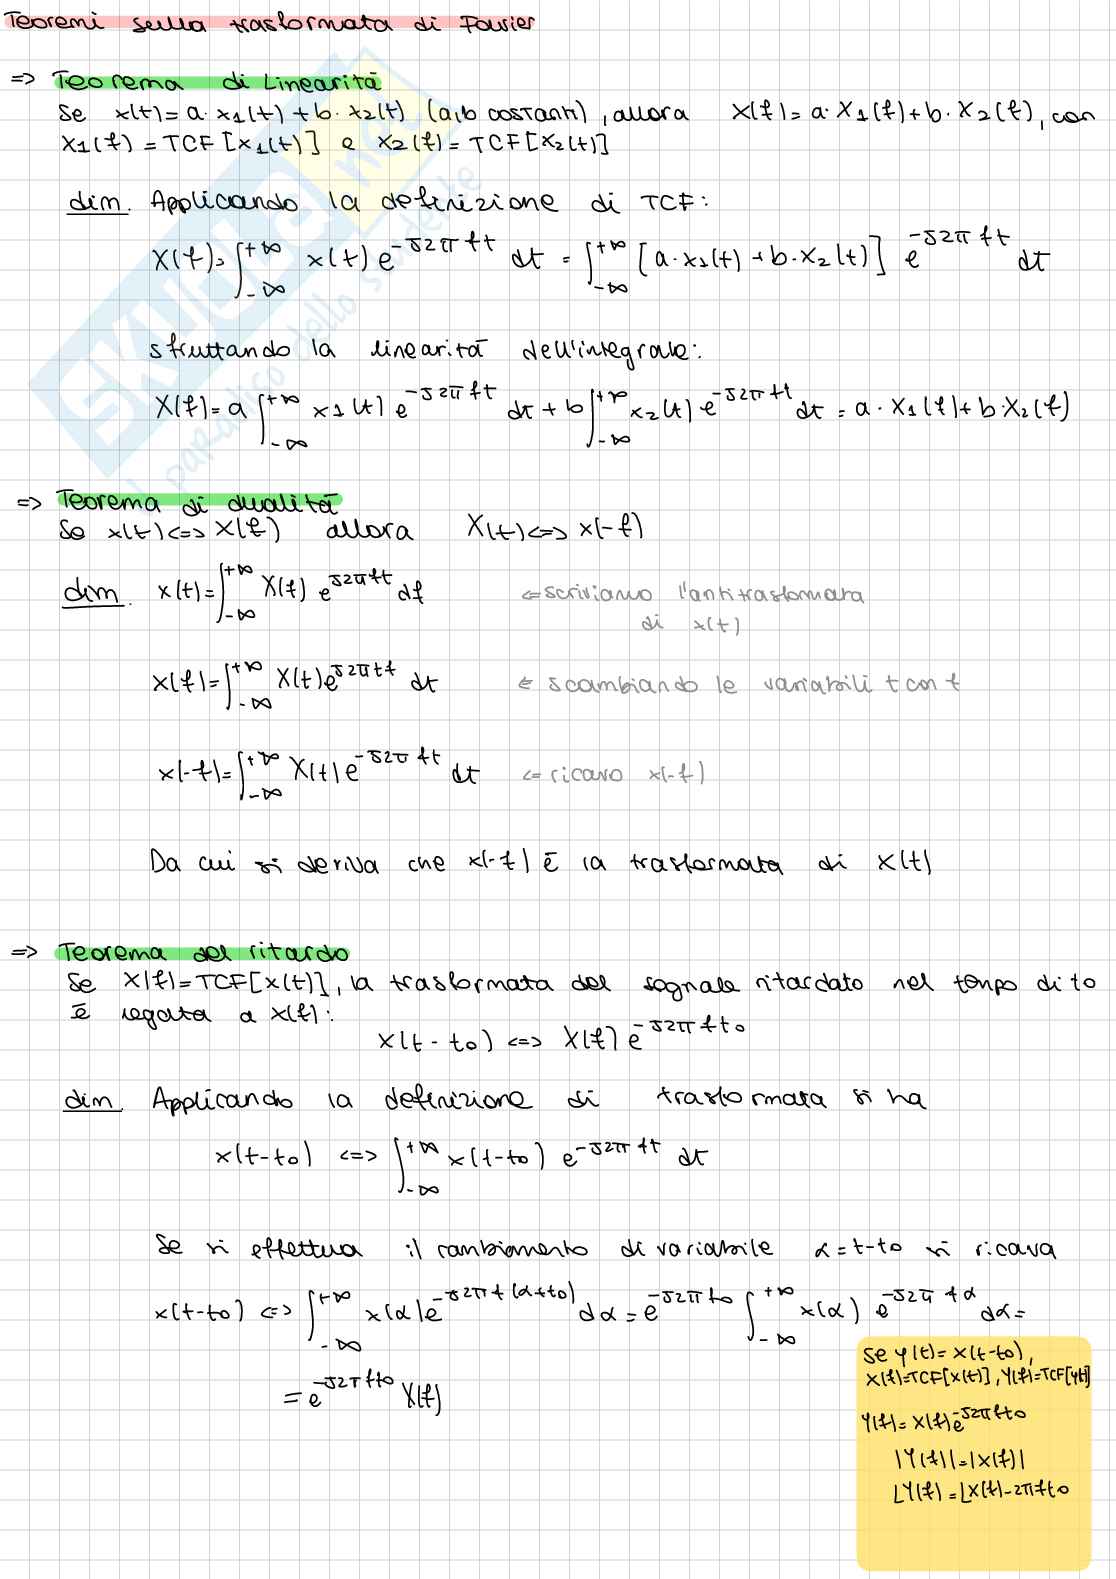 Teoremi sulla trasformata di Fourier
=> Teorema di Linearità
Se x(t) = a· x1(t) + b· x2(t) (a,b costanti), allora X(f) = a· X1(f) + b· X2(f), con
X1(f) = TCF[x1(t)] e X2(f) = TCF[x2(t)]
dim. Applicando la definizione di TCF:
X(f) = ∫_{-∞}^{+∞} x(t) e^{-j2π ft} dt = ∫_{-∞}^{+∞} [a·x1(t) + b·x2(t)] e^{-j2π ft} dt
sfruttando la linearità dell'integrale:
X(f) = a ∫_{-∞}^{+∞} x1(t) e^{-j2π ft} dt + b ∫_{-∞}^{+∞} x2(t) e^{-j2π ft} dt = a · X1(f) + b·X2(f)
=> Teorema di dualità
Se x(t) <=> X(f) allora X(t) <=> x(-f)
dim. x(t) = ∫_{-∞}^{+∞} X(f) e^{j2π ft} df <= scriviamo l'antitrasformata
di x(t)
x(f) = ∫_{-∞}^{+∞} X(t) e^{j2π tf} dt <= scambiando le variabili t con f
x(-f) = ∫_{-∞}^{+∞} X(t) e^{-j2π ft} dt <= ricavo x(-f)
Da cui si deriva che x(-f) è la trasformata di X(t)
=> Teorema del ritardo
Se X(f) = TCF[x(t)], la trasformata del segnale ritardato nel tempo di t0
è legata a X(f):
x(t - t0) <=> X(f) e^{-j2π f t0}
dim. Applicando la definizione di trasformata si ha
x(t-t0) <=> ∫_{-∞}^{+∞} x(t-t0) e^{-j2π ft} dt
Se si effettua il cambiamento di variabile α = t-t0 si ricava
x(t-t0) <=> ∫_{-∞}^{+∞} x(α) e^{-j2π f (α+t0)} dα = e^{-j2π t0} ∫_{-∞}^{+∞} x(α) e^{-j2π fα} dα =
= e^{-j2π f t0} X(f)
Se y(t) = x(t-t0),
X(f)=TCF[x(t)], Y(f)=TCF[y(t)]
Y(f) = X(f) e^{-j2π f t0}
|Y(f)| = |X(f)|
∠Y(f) = ∠X(f) - 2π f t0
SKUOLA.net
il paradiso dello studente